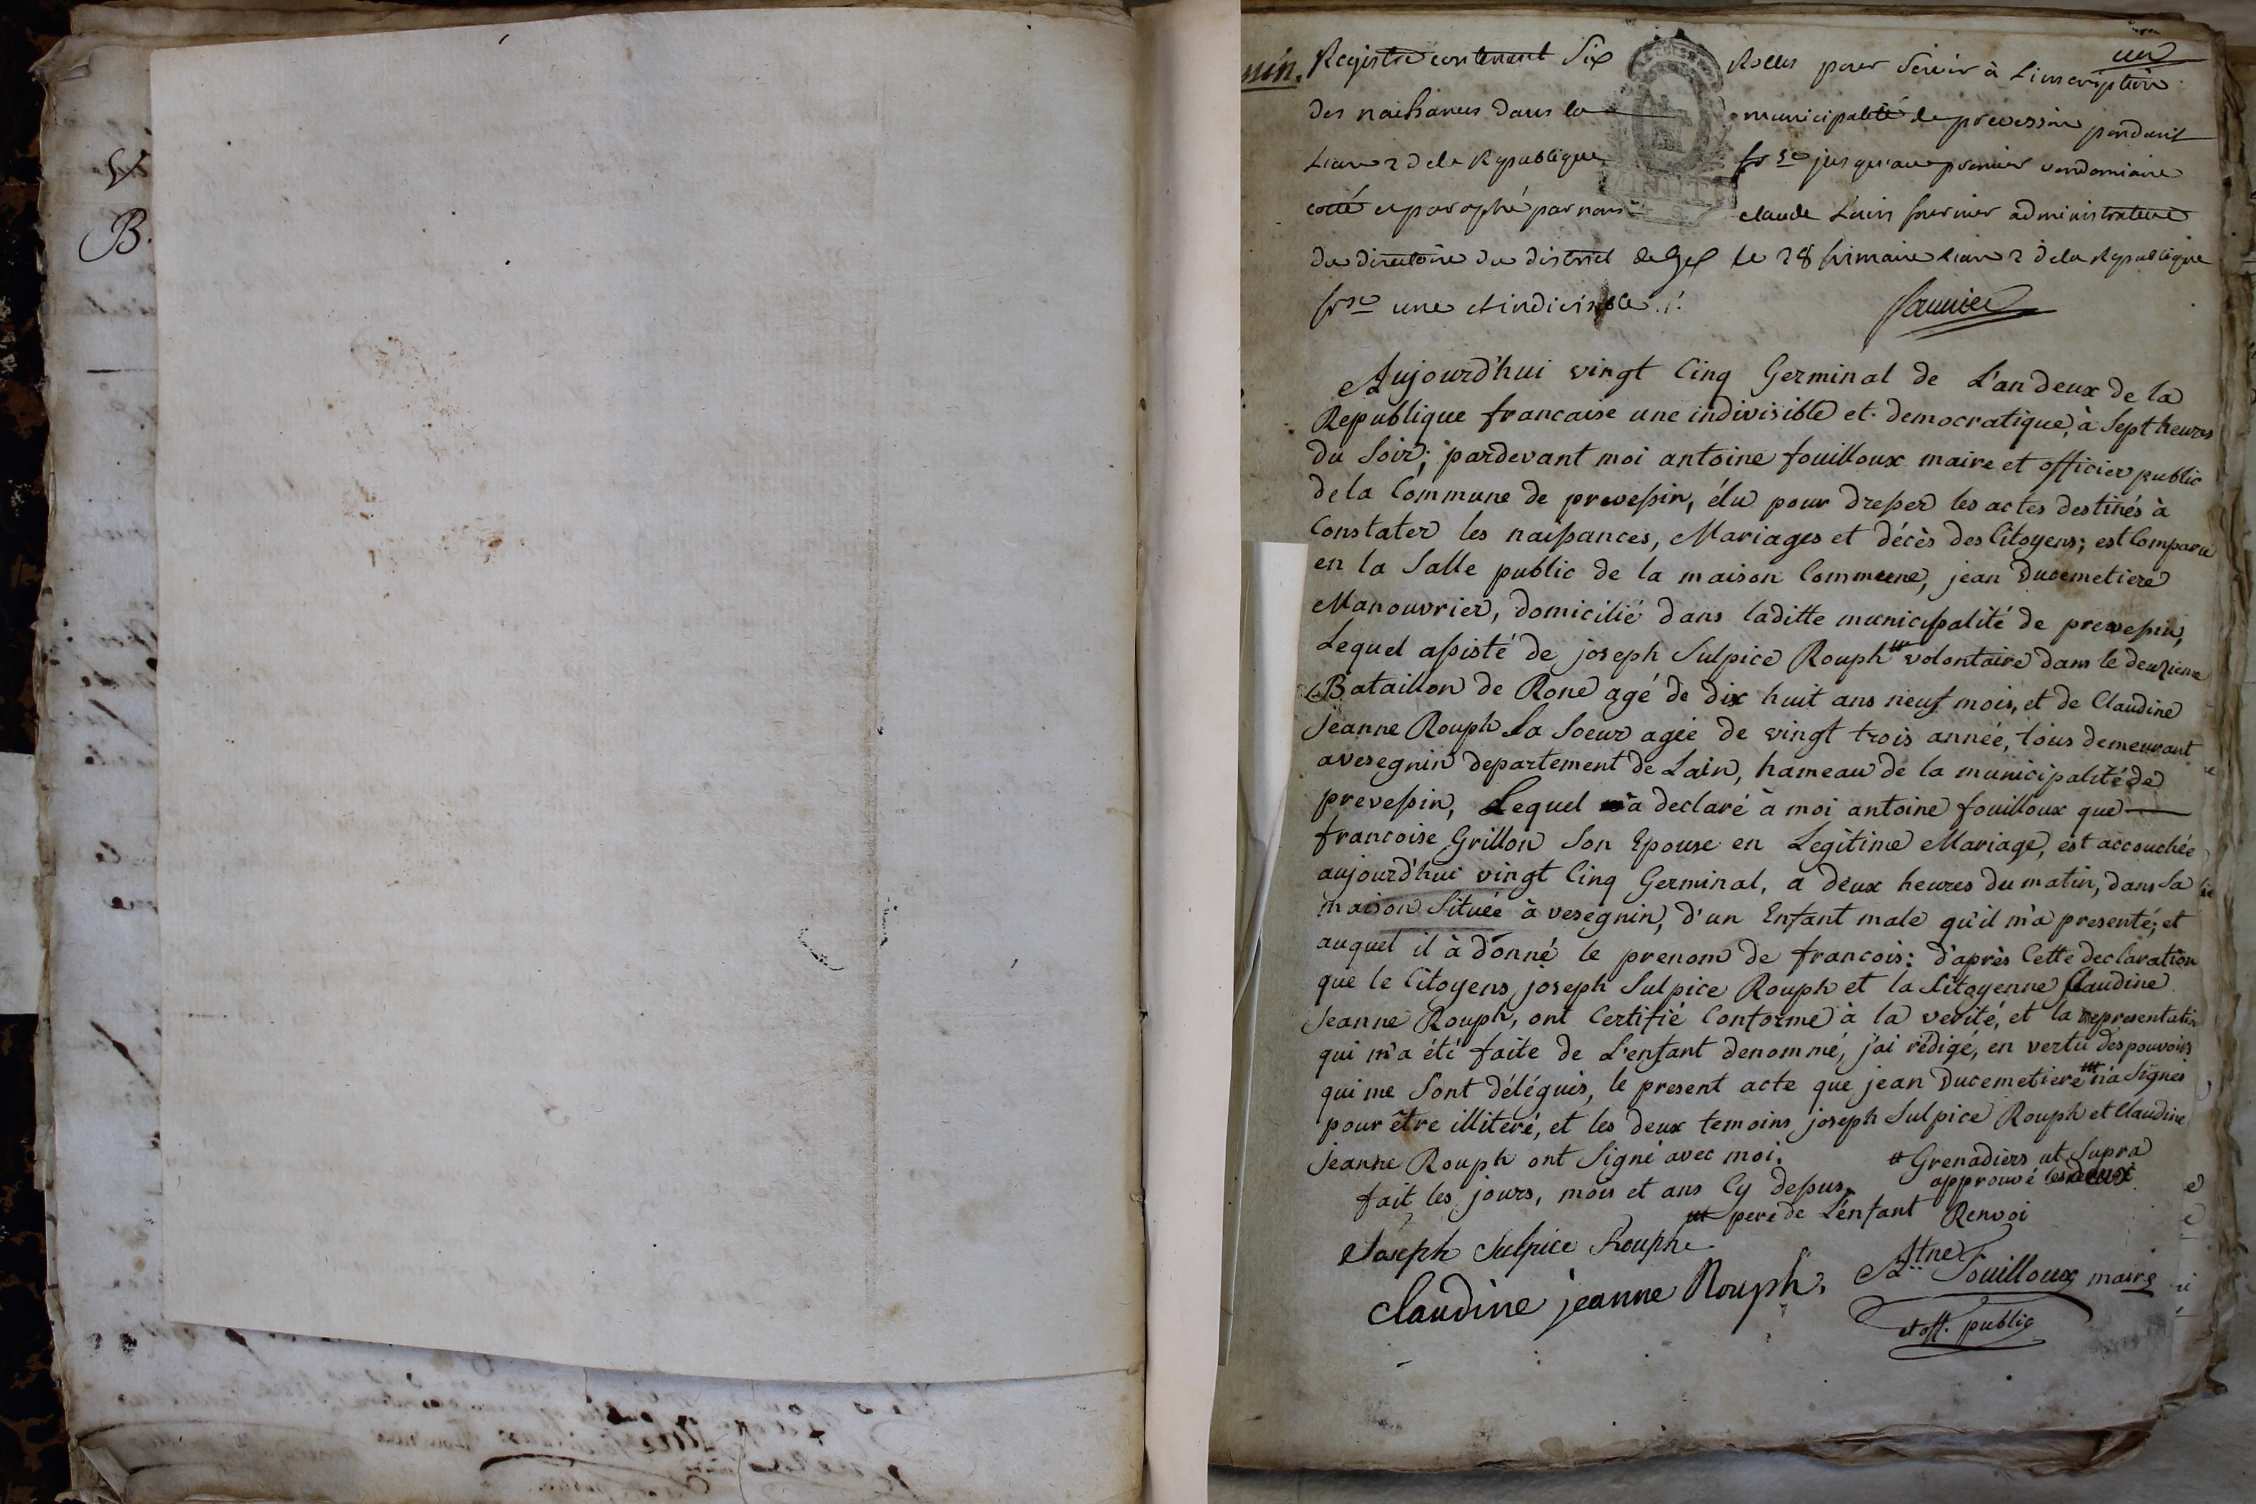 V
B.
un
Registre contenant Six Rolles pour Servir à L'inscription
des naissances dans la municipalité de prevessin pendant
L'an 2 de la Republique frse jusqu'au premier vendemiaire
cotté et parafhé par nous claude Louis fournier administrateur
du directoire du district de Gex le 28 frimaire L'an 2 de la Republique
frse une et indivisible ./.
fournier
Aujourd'hui vingt Cinq Germinal de L'an deux de la
Republique francaise une indivisible et democratique, à Sept heures
du Soir; pardevant moi antoine fouilloux maire et officier public
de la Commune de prevessin, élu pour dresser les actes destinés à
Constater les naissances, Mariages et décès des Citoyens; est Comparu
en la Salle public de la maison Commune, jean Ducemetiere
Manouvrier, domicilié dans laditte municipalité de prevessin,
Lequel assisté de joseph Sulpice Rouph # volontaire dans le deuzieme
Bataillon de Rone agé de dix huit ans neuf mois, et de Claudine
Jeanne Rouph Sa Soeur agée de vingt trois année, tous demeurant
a vesegnin departement de Lain, hameau de la municipalité de
prevessin, Lequel a declaré à moi antoine fouilloux que
francoise Grillon Son Epouse en Legitime Mariage, est accouchée
aujourd'hui vingt Cinq Germinal, a deux heures du matin, dans Sa
maison Située à vesegnin, d'un Enfant male qu'il m'a presenté; et
auquel il à donné le prenom de francois: d'après Cette declaration
que le Citoyens joseph Sulpice Rouph et la Citoyenne Claudine
Jeanne Rouph, ont Certifié Conforme à la verité, et la representation
qui m'a été faite de L'enfant denommé, j'ai rédigé, en vertu des pouvoirs
qui me Sont délégués, le present acte que jean Ducemetiere ## n'a Signés
pour être illiteré, et les deux temoins joseph Sulpice Rouph et Claudine
Jeanne Rouph ont Signé avec moi.
# Grenadiers ut Supra
approuvé les deux
fait les jours, mois et ans Cy dessus.
## pere de L'enfant Renvoi
Joseph Sulpice Rouph
Atne Fouilloux maire
Claudine jeanne Rouph.
et off. public